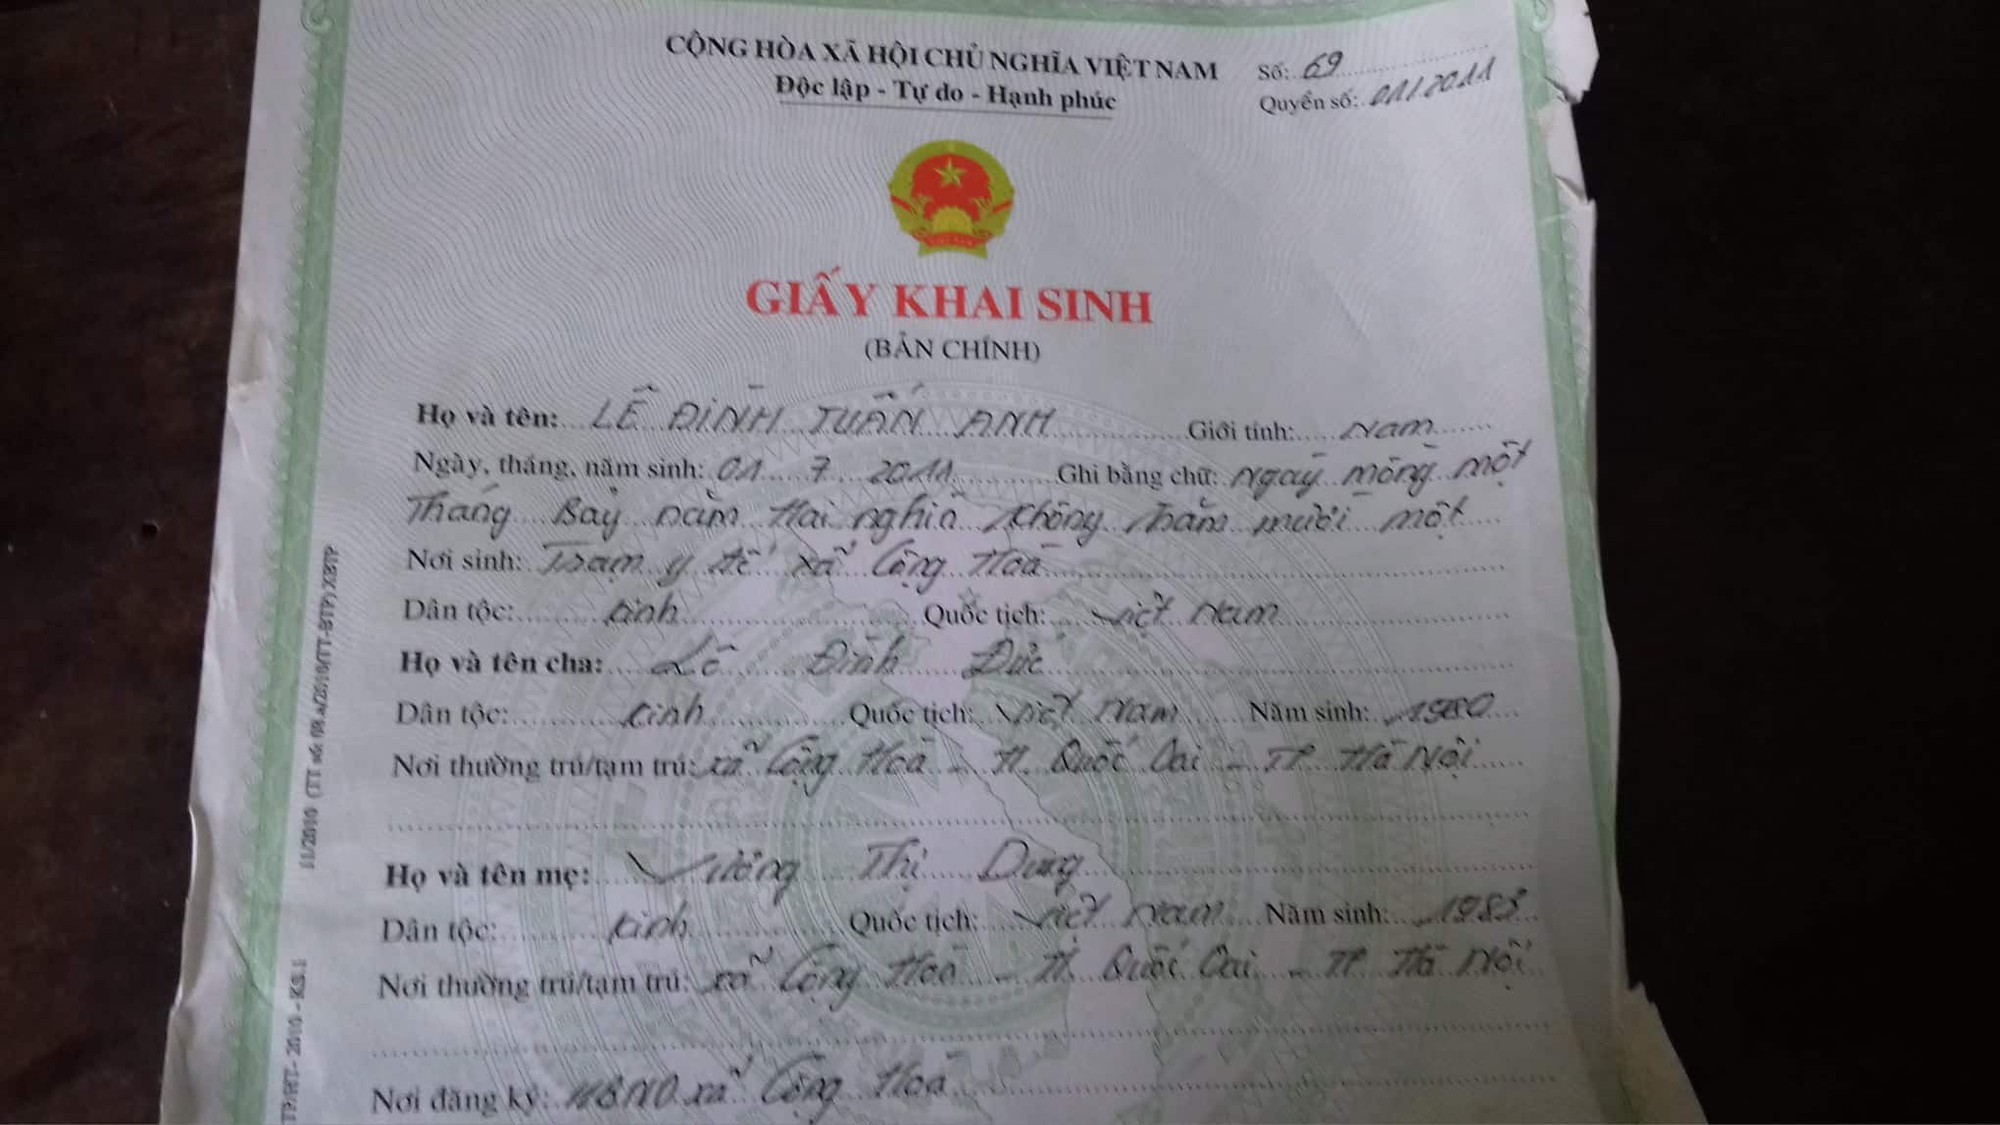 CỘNG HÒA XÃ HỘI CHỦ NGHĨA VIỆT NAM
Độc lập - Tự do - Hạnh phúc
Số: 69
Quyển số: 01/2011
GIẤY KHAI SINH
(BẢN CHÍNH)
Họ và tên: LÊ ĐÌNH TUẤN ANH Giới tính: Nam
Ngày, tháng, năm sinh: 01 7 2011 Ghi bằng chữ: Ngày mồng một
Tháng Bảy năm Hai nghìn không trăm mười một
Nơi sinh: Trạm y tế xã Cộng Hoà
Dân tộc: Kinh Quốc tịch: Việt Nam
Họ và tên cha: Lê Đình Đức
Dân tộc: Kinh Quốc tịch: Việt Nam Năm sinh: 1980
Nơi thường trú/tạm trú: xã Cộng Hoà - H. Quốc Oai - TP Hà Nội
Họ và tên mẹ: Vương Thị Dung
Dân tộc: Kinh Quốc tịch: Việt Nam Năm sinh: 1983
Nơi thường trú/tạm trú: xã Cộng Hoà - H. Quốc Oai - TP Hà Nội
Nơi đăng ký: UBND xã Cộng Hoà
11/2010 (TT số: 08.a/2010/TT-BTP) XBTP
TP/HT - 2010 - KS.1